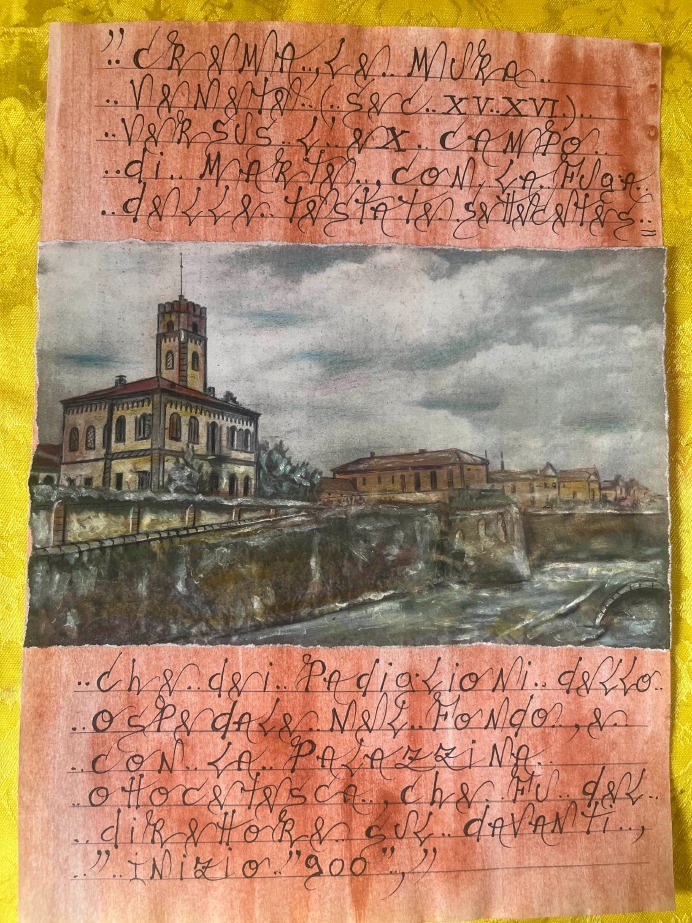 " CREMA.., LE.. MURA..
.. VENETE.. (.. SEC.. XV.-XVI.)..
.. VERSUS.. L'EX.. CAMPO..
.. di.. MARTE.., CON.. LA.. FUgA..
.. dELLE.. TESTATE.. SETTECENTES.. =
.. ChE.. dEi.. PAdigLIONi.. dELLO..
.. OSPEdALE.. NEL.. FONdO.., E..
.. CON.. LA.. PALAZZiNA..
.. OTTOCENTESCA.., ChE.. FU.. dEL..
.. diRETTORE.. SUL.. dAVANTi..,
.. " INiZiO.. "900 ", "